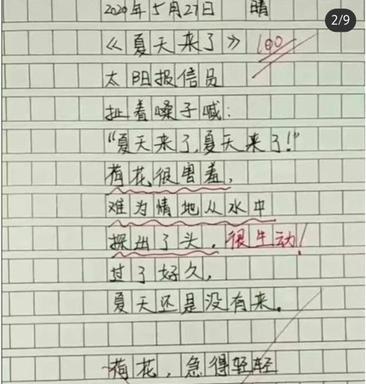 2/9
2020年5月27日 晴
《夏天来了》 100
太阳报信员
扯着嗓子喊：
“夏天来了，夏天来了！”
荷花很害羞，
难为情地从水中
探出了头。很生动！
过了好久，
夏天还是没有来。
荷花，急得轻轻